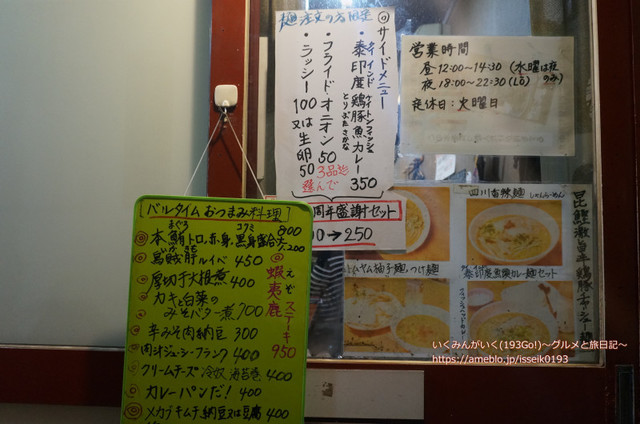 麺注文の方限定
◎サイドメニュー
・泰印度鶏豚魚カレー 350
タイ インド チキントンフィッシュ
とりぶたさかな
・フライド・オニオン 50
・ラッシー 100 又は生卵 50
3品迄
選んで
周年盛謝セット
→250
営業時間
昼12:00～14:30 (水曜は夜のみ)
夜18:00～22:30(LO)
定休日:火曜日
四川香辣麺
トムヤム柚子麺つけ麺
泰印度魚豚カレー麺セット
[バルタイム おつまみ料理]
まぐろ
本鮪トロ、赤身 800
コブミ
烏賊肝ルイベ 450
厚切子大根煮 400
カキと白菜の
みそバター煮 700
辛みそ肉納豆 300
肉汁ジューシーフランク 400
クリームチーズ冷奴海苔巻 400
カレーパンだ! 400
メカブキムチ納豆又は豆腐 400
◎蝦夷鹿ステーキ 950
えぞ
いくみんがいく(193Go!)～グルメと旅日記～
https://ameblo.jp/isseik0193